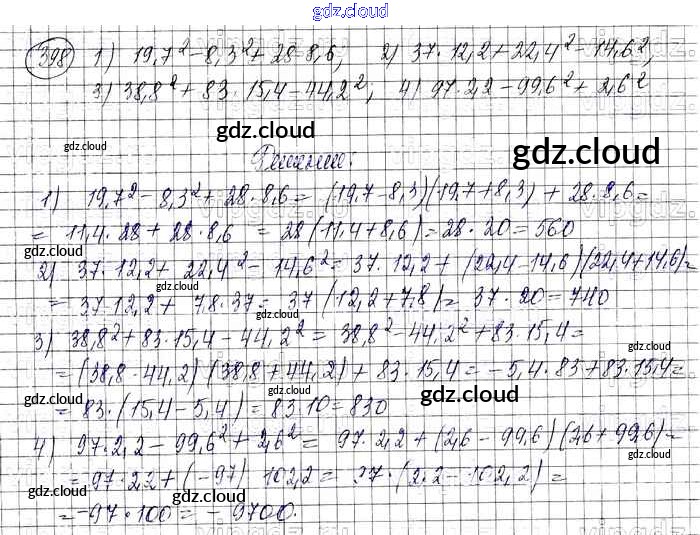 gdz.cloud
398 1) 19,7² - 8,3² + 28·8,6; 2) 37·12,2 + 22,4² - 14,6²;
3) 38,8² + 83·15,4 - 44,2²; 4) 97·2,2 - 99,6² + 2,6²
gdz.cloud gdz.cloud gdz.cloud
1) 19,7² - 8,3² + 28·8,6 = (19,7 - 8,3)(19,7 + 8,3) + 28·8,6 =
= 11,4·28 + 28·8,6 = 28(11,4 + 8,6) = 28·20 = 560
gdz.cloud gdz.cloud
2) 37·12,2 + 22,4² - 14,6² = 37·12,2 + (22,4 - 14,6)(22,4 + 14,6) =
= 37·12,2 + 7,8·37 = 37(12,2 + 7,8) = 37·20 = 740
3) 38,8² + 83·15,4 - 44,2² = 38,8² - 44,2² + 83·15,4 =
gdz.cloud
= (38,8 - 44,2)(38,8 + 44,2) + 83·15,4 = -5,4·83 + 83·15,4 =
gdz.cloud gdz.cloud gdz.cloud
= 83·(15,4 - 5,4) = 83·10 = 830
4) 97·2,2 - 99,6² + 2,6² = 97·2,2 + (2,6 - 99,6)(2,6 + 99,6) =
gdz.cloud
= 97·2,2 + (-97) 102,2 = 97·(2,2 - 102,2) =
gdz.cloud gdz.cloud gdz.cloud
= -97·100 = -9700.